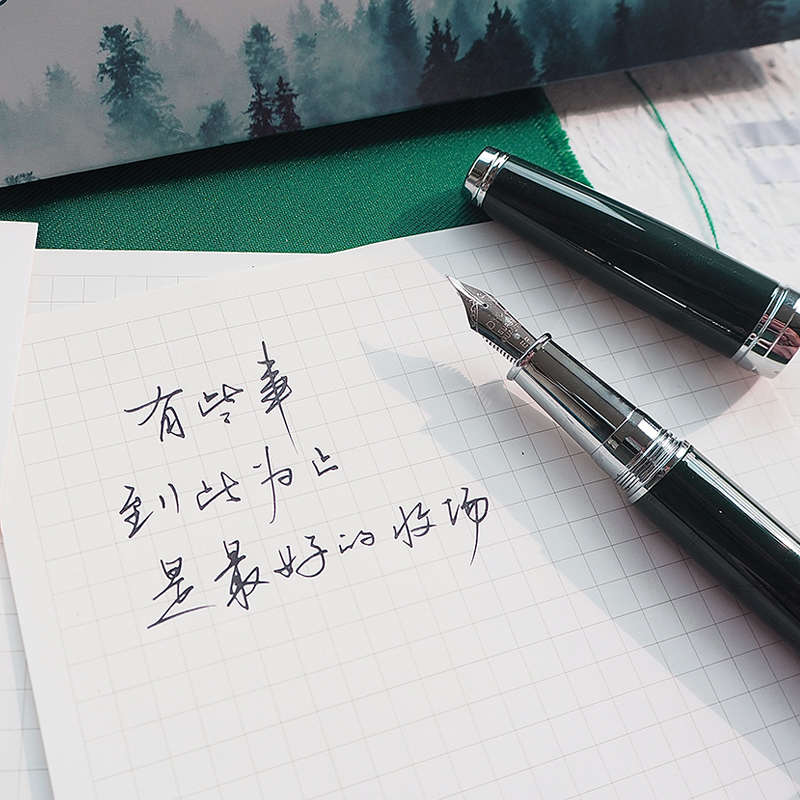 有些事
到此为止
是最好的收场